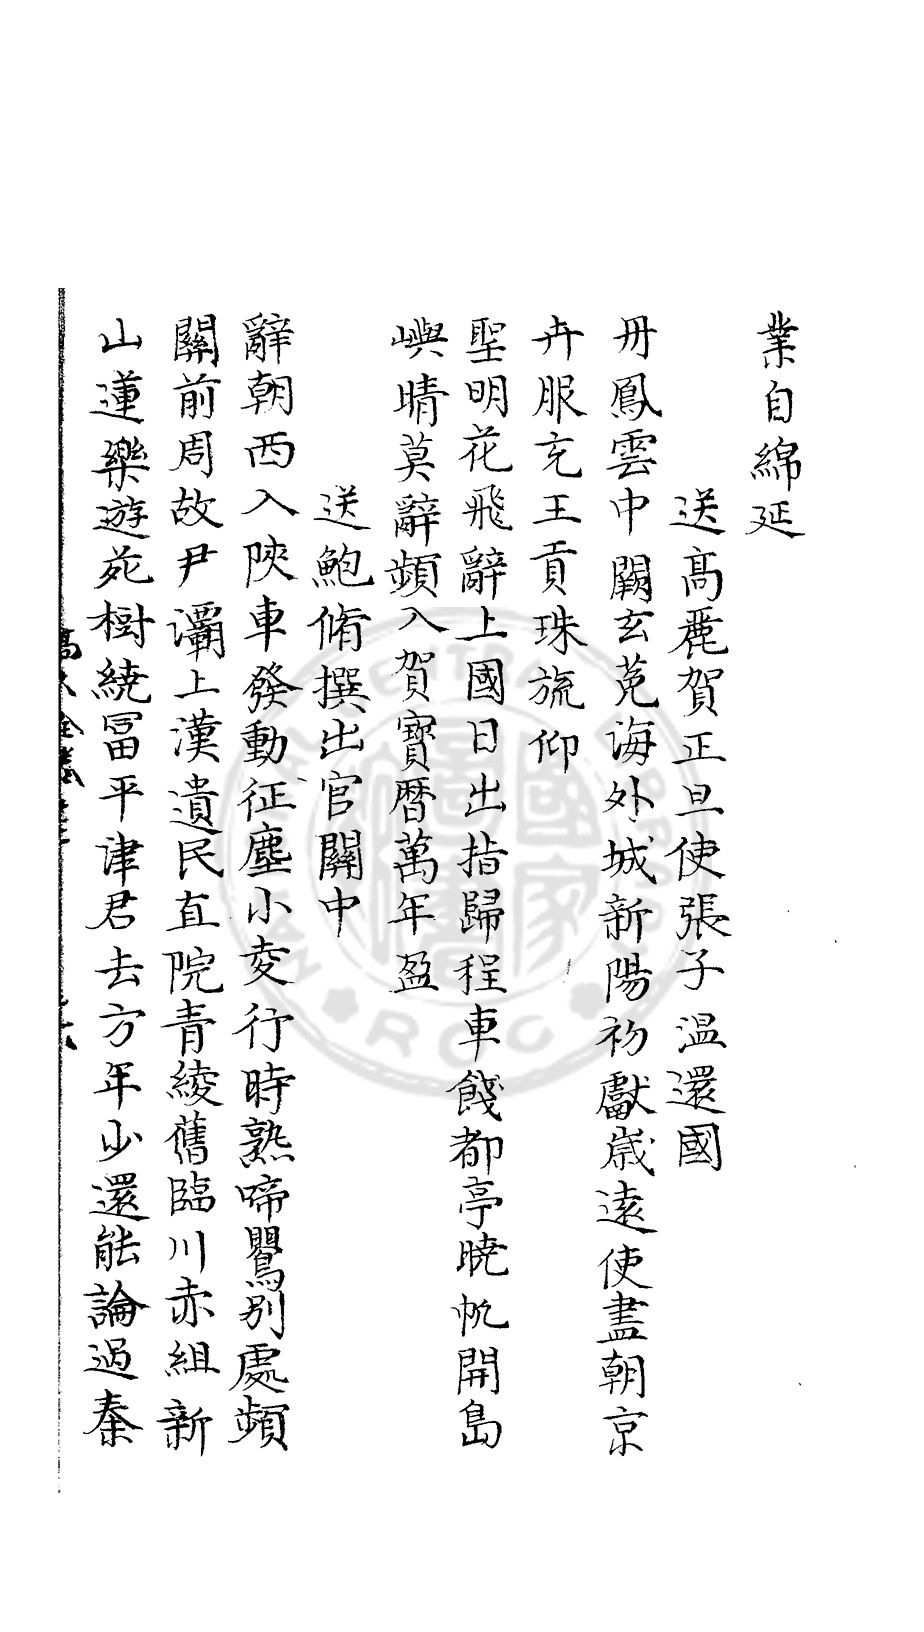 業自綿延
送髙麗賀正旦使張子温還國
丹鳳雲中闕玄菟海外城新陽初獻歲遠使盡朝京
卉服充王貢珠旒仰
聖明花飛辭上國日出指歸程車餞都亭曉帆開島
嶼晴莫辭頻入賀寶曆萬年盈
送鮑脩撰出官關中
辭朝西入陜車發動征塵小麥行時熟啼鸎别處頻
關前周故尹灞上漢遺民直院青綾舊臨川赤組新
山蓮樂遊苑樹繞冨平津君去方年少還能論過秦